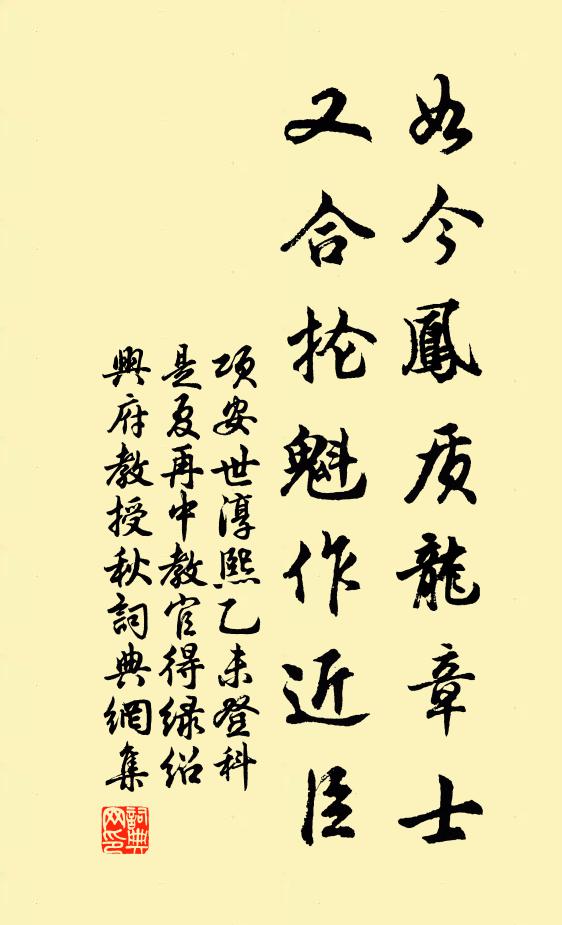 如今鳳质龍章士
又合抡魁作近臣
项安世淳熙乙未登科
是夏再中教官得绿绍
興府教授秋詞典網集
詞典網印